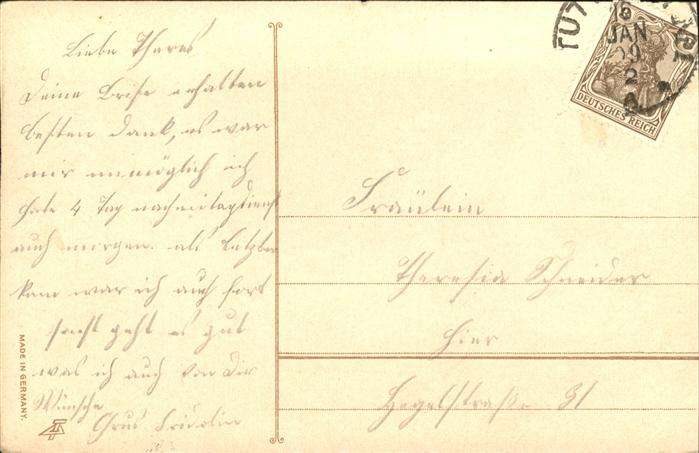 Liebe Theres
Deine Briefe erhalten
besten Dank, es war
mir unmöglich ich
habe 4 Tag nachmittagdienst
auch morgen. als
kam war ich auch fort
sonst geht es gut
was ich auch von Dir
Wünsche
Grus Fridolin
MADE IN GERMANY.
TUT
18
JAN
09
2
DEUTSCHES REICH
Fräulein
Theresia Schneider
Hier
Hegelstraße 31